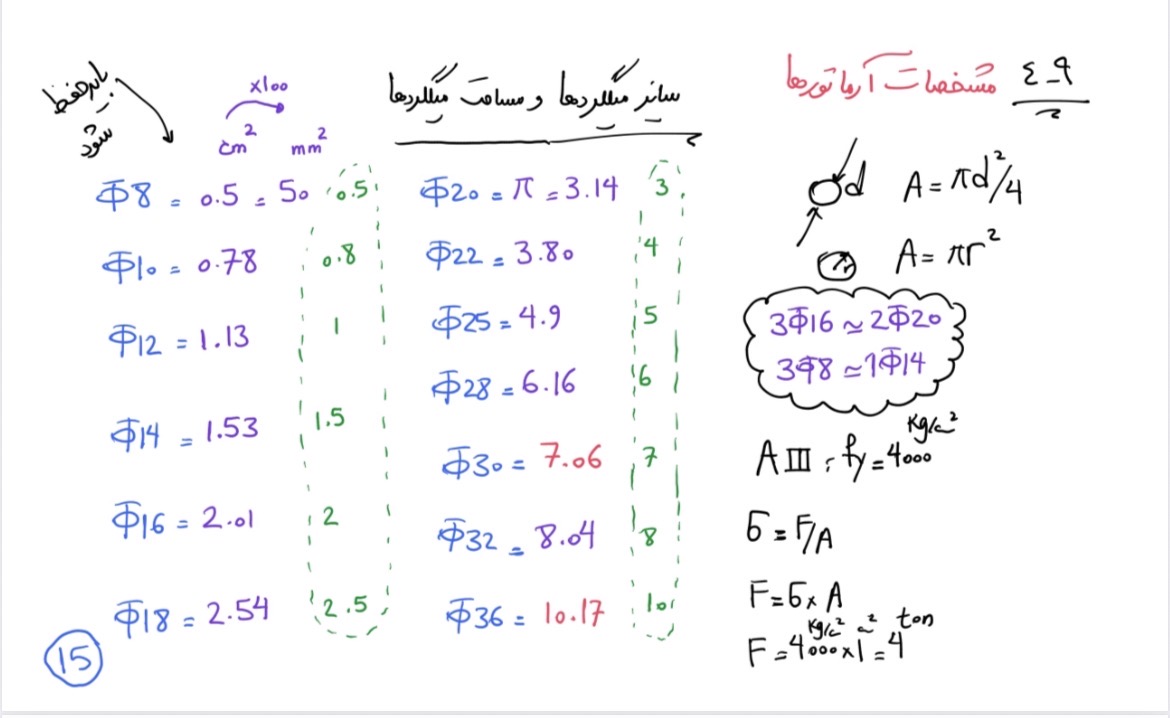 ٩-٤ مشخصات آرماتورها
سایز میلگردها و مساحت میلگردها
باید حفظ شود
x100
cm² mm²
Φ8 = 0.5 = 50 0.5
Φ10 = 0.78 0.8
Φ12 = 1.13 1
Φ14 = 1.53 1.5
Φ16 = 2.01 2
Φ18 = 2.54 2.5
Φ20 = π = 3.14 3
Φ22 = 3.80 4
Φ25 = 4.9 5
Φ28 = 6.16 6
Φ30 = 7.06 7
Φ32 = 8.04 8
Φ36 = 10.17 10
d A = πd²/4
A = πr²
3Φ16 ≃ 2Φ20
3Φ8 ≃ 1Φ14
AIII : fy = 4000 Kg/cm²
σ = F/A
F = σ x A
F = 4000 Kg/cm² x 1 cm² = 4 ton
15